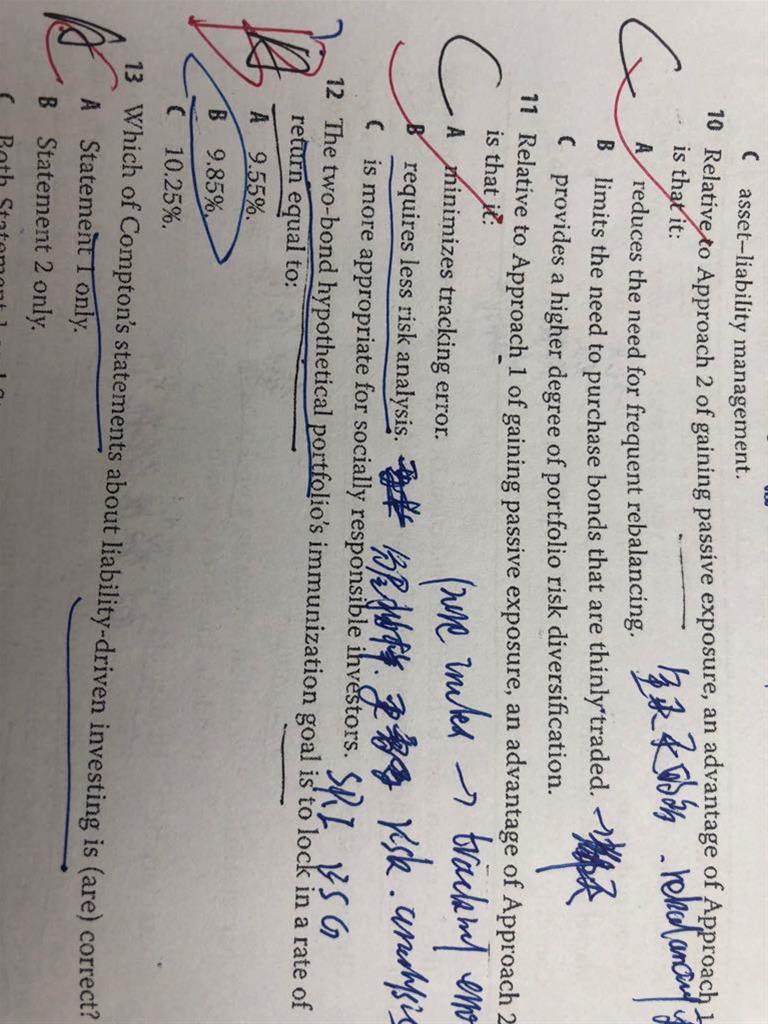 C asset–liability management.
10 Relative to Approach 2 of gaining passive exposure, an advantage of Approach 1
is that it:
A reduces the need for frequent rebalancing.
rebalancing
B limits the need to purchase bonds that are thinly traded. →
C provides a higher degree of portfolio risk diversification.
11 Relative to Approach 1 of gaining passive exposure, an advantage of Approach 2
is that it:
A minimizes tracking error.
→
B requires less risk analysis.
risk. analysis
C is more appropriate for socially responsible investors.
SRI ESG
12 The two-bond hypothetical portfolio's immunization goal is to lock in a rate of
return equal to:
A 9.55%.
B 9.85%.
C 10.25%.
13 Which of Compton's statements about liability-driven investing is (are) correct?
A Statement 1 only.
B Statement 2 only.
C Both Statement 1 and